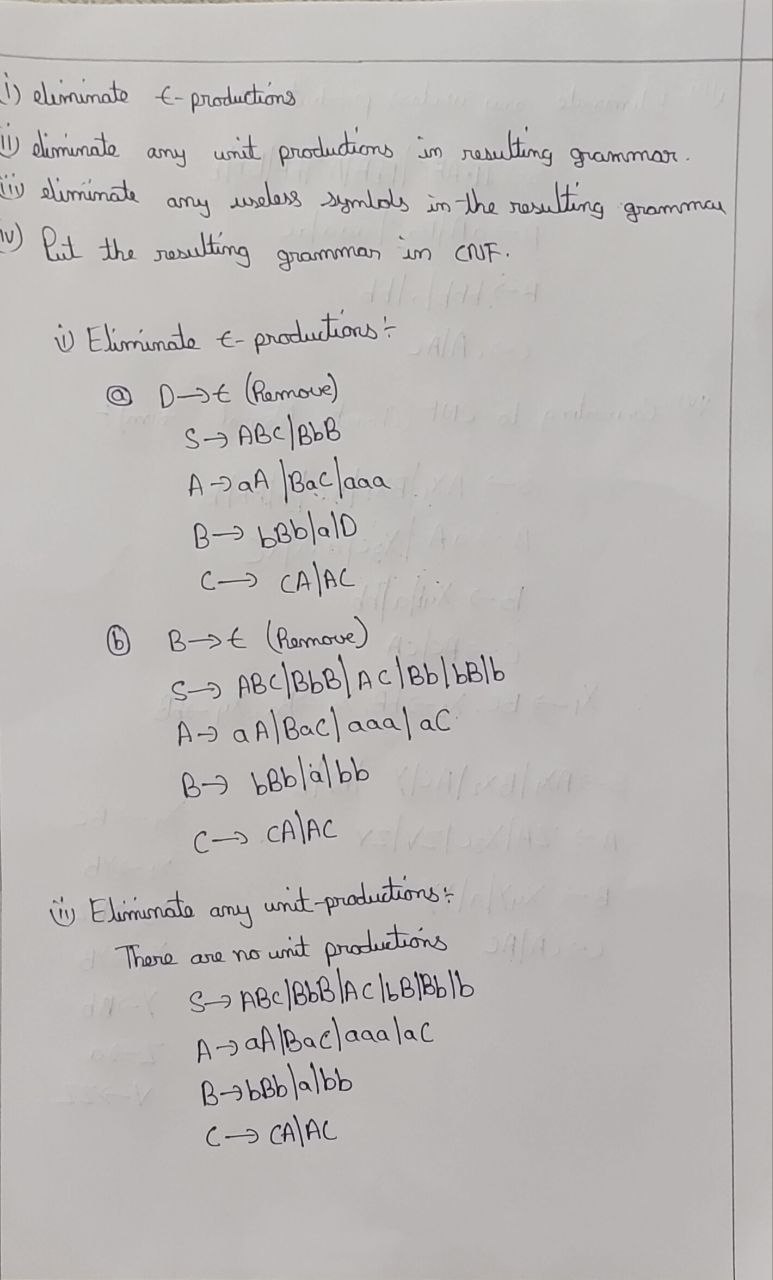 i) eliminate ε-productions
ii) eliminate any unit productions in resulting grammar.
iii) eliminate any useless symbols in the resulting grammar
iv) Put the resulting grammar in CNF.
i) Eliminate ε-productions:-
ⓐ D→ε (Remove)
S→ABC|BbB
A→aA|BaC|aaa
B→bBb|a|D
C→CA|AC
ⓑ B→ε (Remove)
S→ABC|BbB|AC|Bb|bB|b
A→aA|BaC|aaa|aC
B→bBb|a|bb
C→CA|AC
ii) Eliminate any unit-productions:-
There are no unit productions
S→ABC|BbB|AC|bB|Bb|b
A→aA|BaC|aaa|aC
B→bBb|a|bb
C→CA|AC